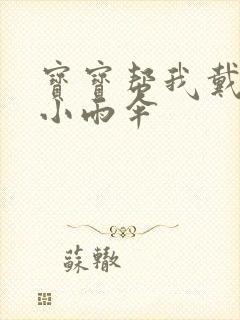 寶寶幫我戴
小雨傘
蘇轍